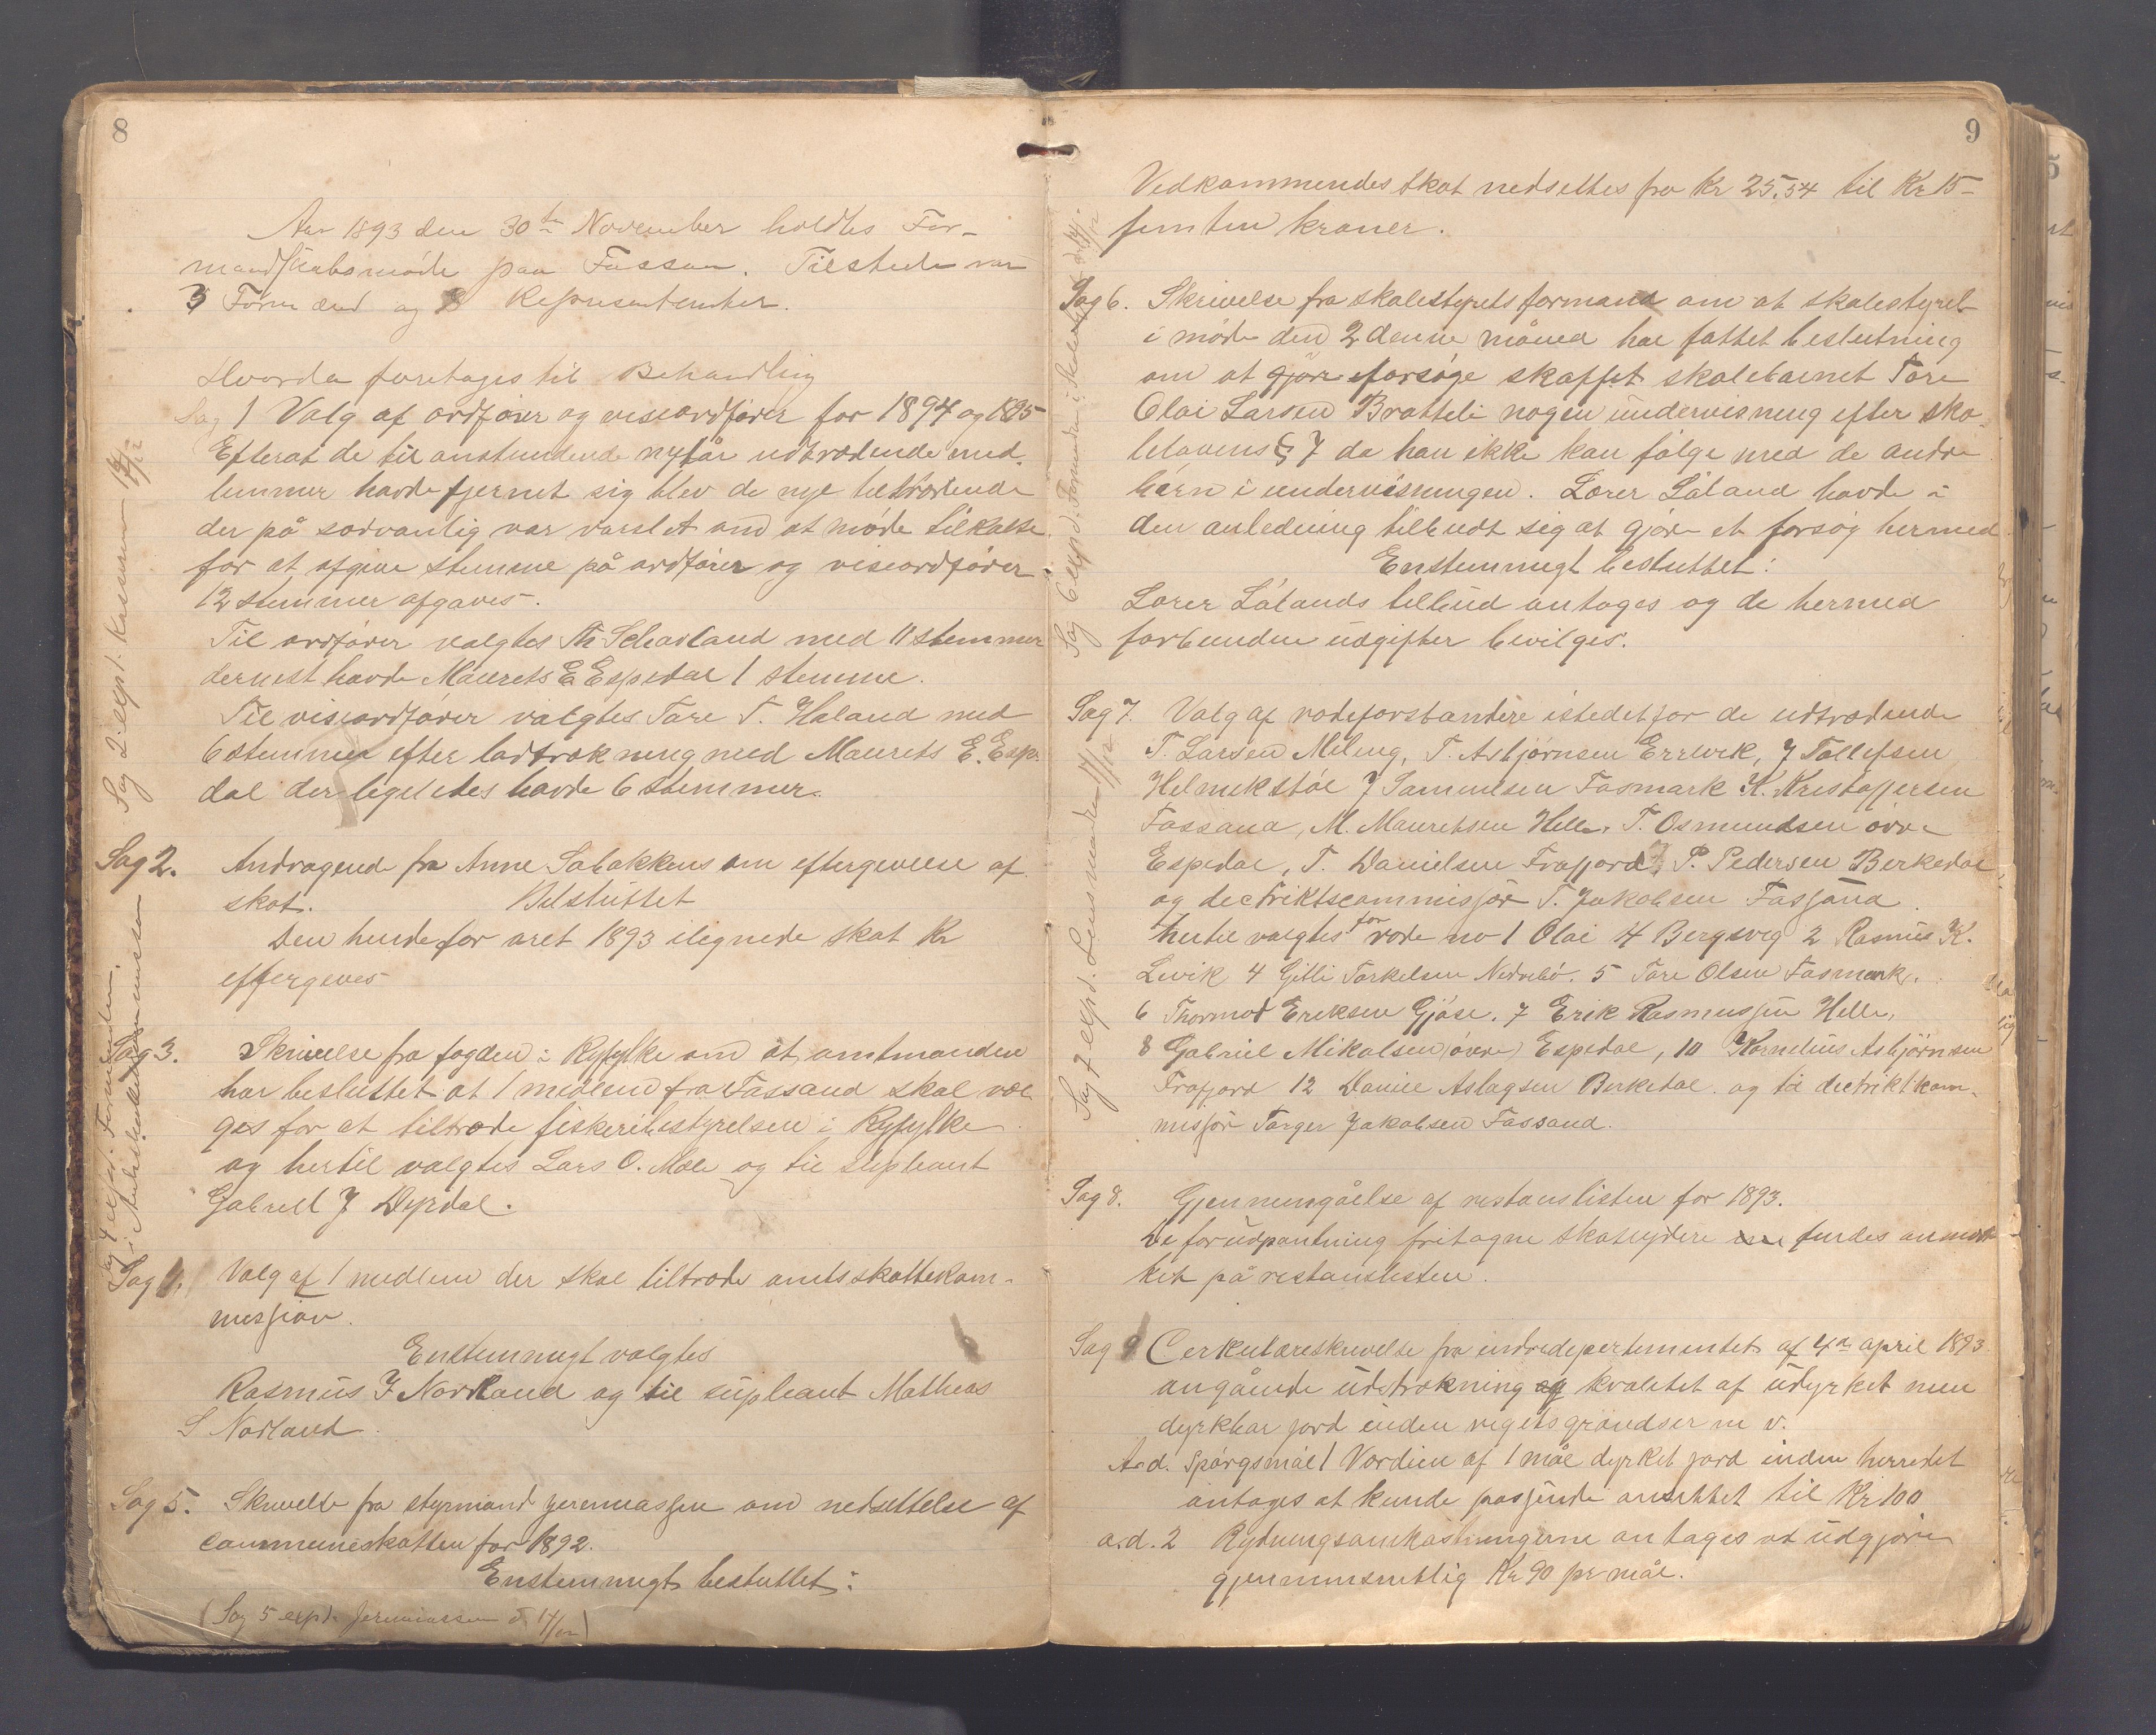 8
Aar 1893 den 30te November holdtes For-
mandskabsmøde paa Fossan. Tilstede var
3 Formænd og 8 Repræsentanter.
Hvorda foretages til Behandling
Sag 1 Valg af ordfører og viseordfører for 1894 og 1895
Efterat de til anstundende nytår udtrædende med-
lemmer havde fjernet sig blev de nye tiltrædende
der på sædvanlig var varslet om at møde tilkalte
for at afgive stemme på ordfører og viseordfører
12 stemmer afgaves.
Til ordfører valgtes Th Scharland med 11 stemmer
dernest havde Maurets E Espedal 1 stemme.
Til viseordfører valgtes Tore T. Haland med
6 stemmer efter lodtrækning med Maurets E. Espe
dal der ligeledes havde 6 stemmer.
Sag 2 expd. Kasseren 17/12
Sag 2. Andragende fra Anne Sabakkens om eftergivelse af
skat. Belsluttet
Den hende for aret 1893 ilignede skat Kr
eftergives
Sag 3. Skrivelse fra fogden i Ryfylke om at amtmanden
har besluttet at 1 medlem fra Fossand skal væl
ges for at tiltræde fiskeribestyrelsen i Ryfylke
og hertil valgtes Lars O. Mæle og til supleant
Gabriel J Dyrdal.
Sag 4 exp. Formanden
i Amtsskattekommissionen
Sag 4. Valg af 1 medlem der skal tiltræde amtsskattekom-
missjon.
Enstemmigt valgtes
Rasmus J Nordland og til supleant Mathias
S Nordland.
Sag 5. Skrivelse fra styrmand Jeremiassen om nedsettelse af
communeskatten for 1892.
Enstemmigt besluttet:
(Sag 5 expd. Jeremiassen d. 17/12)
9
Vedkommendes skat nedsettes fra Kr 25,54 til Kr 15-
femten kroner.
Sag 6 expd. Formanden i Skolestyret d. 17/12
Sag 6. Skrivelse fra skolestyrets formand om at skolestyret
i møde den 2 denne måned har fattet beslutning
om at gjøre forsøge skaffet skolebarnet Tore
Olai Larsen Bratteli nogen undervisning efter sko-
lelovens § 7 da han ikke kan følge med de andre
børn i undervisningen. Lærer Låland havde i
den anledning tilbudt sig at gjøre et forsøg hermed
Enstemmigt besluttet:
Lærer Lålands tilbud antages og de hermed
forbundne udgifter bevilges.
Sag 7 expd. Lensmanden 17/12
Sag 7. Valg af rodeforstandere istedetfor de udtrædende
T. Larsen Meling, T. Asbjørnsen Errevik, J Tollefsen
Helmikstøl J Samuelsen Fosmark K. Kristoffersen
Fossana, M. Mauretsen Helle, T. Osmundsen øvre
Espedal, T. Danielsen Frafjord, P. Pedersen Berkedal
og destriktscommissjør T. Jakobsen Fossana.
Hertil valgtes for rode no 1 Olai 4 Bergsvig 2 Rasmus K.
Levik 4 Gitli Torkelsen Nedrebø. 5 Tore Olsen Fosmark.
6 Thormod Eriksen Gjøse. 7 Erik Rasmussen Helle,
8 Gabriel Mikalsen (øvre) Espedal, 10 Kornelius Asbjørnsen
Frafjord 12 Daniel Aslagsen Berkedal og til destriktkom-
missjør Torger Jakobsen Fossand.
Sag 8. Gjennemgåelse af restanslisten for 1893.
De for udpantning fritagne skatydere findes anmær
ket på restanslisten.
Sag 9 Cerkulæreskrivelse fra indredepartementet af 4de april 1893
angående udstrækning og kvalitet af udyrket men
dyrkbar jord inden rigets grændser m v.
A.d. Spørgsmål 1 Værdien af 1 mål dyrket jord inden herredet
antages at kunde passende ansettet til Kr 100
a.d. 2 Rydningsomkostningerne antages at udgjøre
gjennemsnitlig Kr 90 pr mål.